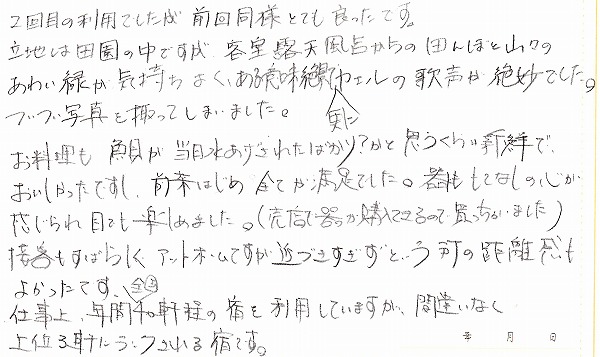 2回目の利用でしたが前回同様とても良かったです。
立地は田園の中ですが、客室露天風呂からの田んぼと山々の
あわい緑が気持ちよく、ある意味絶景でカエルの歌声が絶妙でした。
実に
ブツブツ写真を撮ってしまいました。
お料理も魚貝が当日水あげされたばかり?かと思うくらい新鮮で、
おいしかったですし、前菜はじめ全てが満足でした。器ももてなしの心が
感じられ目でも楽しめました。(売店で器が購入できるので買っちゃいました)
接客もすばらしく、アットホームですが近づきすぎずという町の距離感も
よかったです。
全国
仕事上、年間40軒程の宿を利用していますが、間違いなく
上位3軒にランクされる宿です。
年 月 日